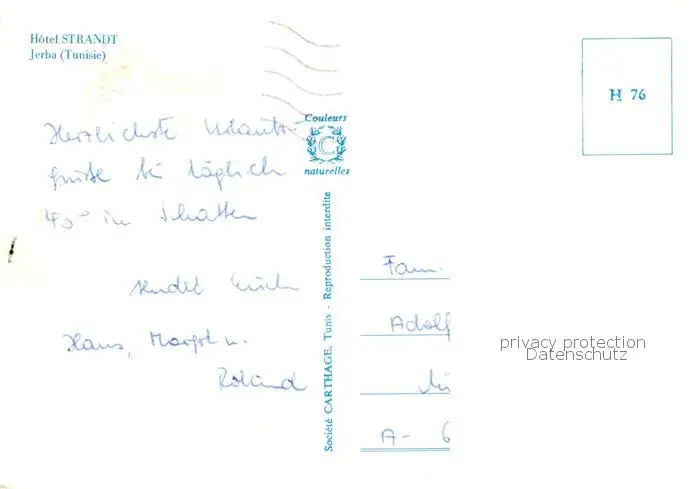 Hôtel STRANDT
Jerba (Tunisie)
Herzlichste Urlaubs-
grüße bei täglich
40° im Schatten
sendet Euch
Hans, Margot u.
Roland
Couleurs
C
naturelles
Société CARTHAGE, Tunis - Reproduction interdite
H 76
Fam.
Adolf
A- 6
privacy protection
Datenschutz